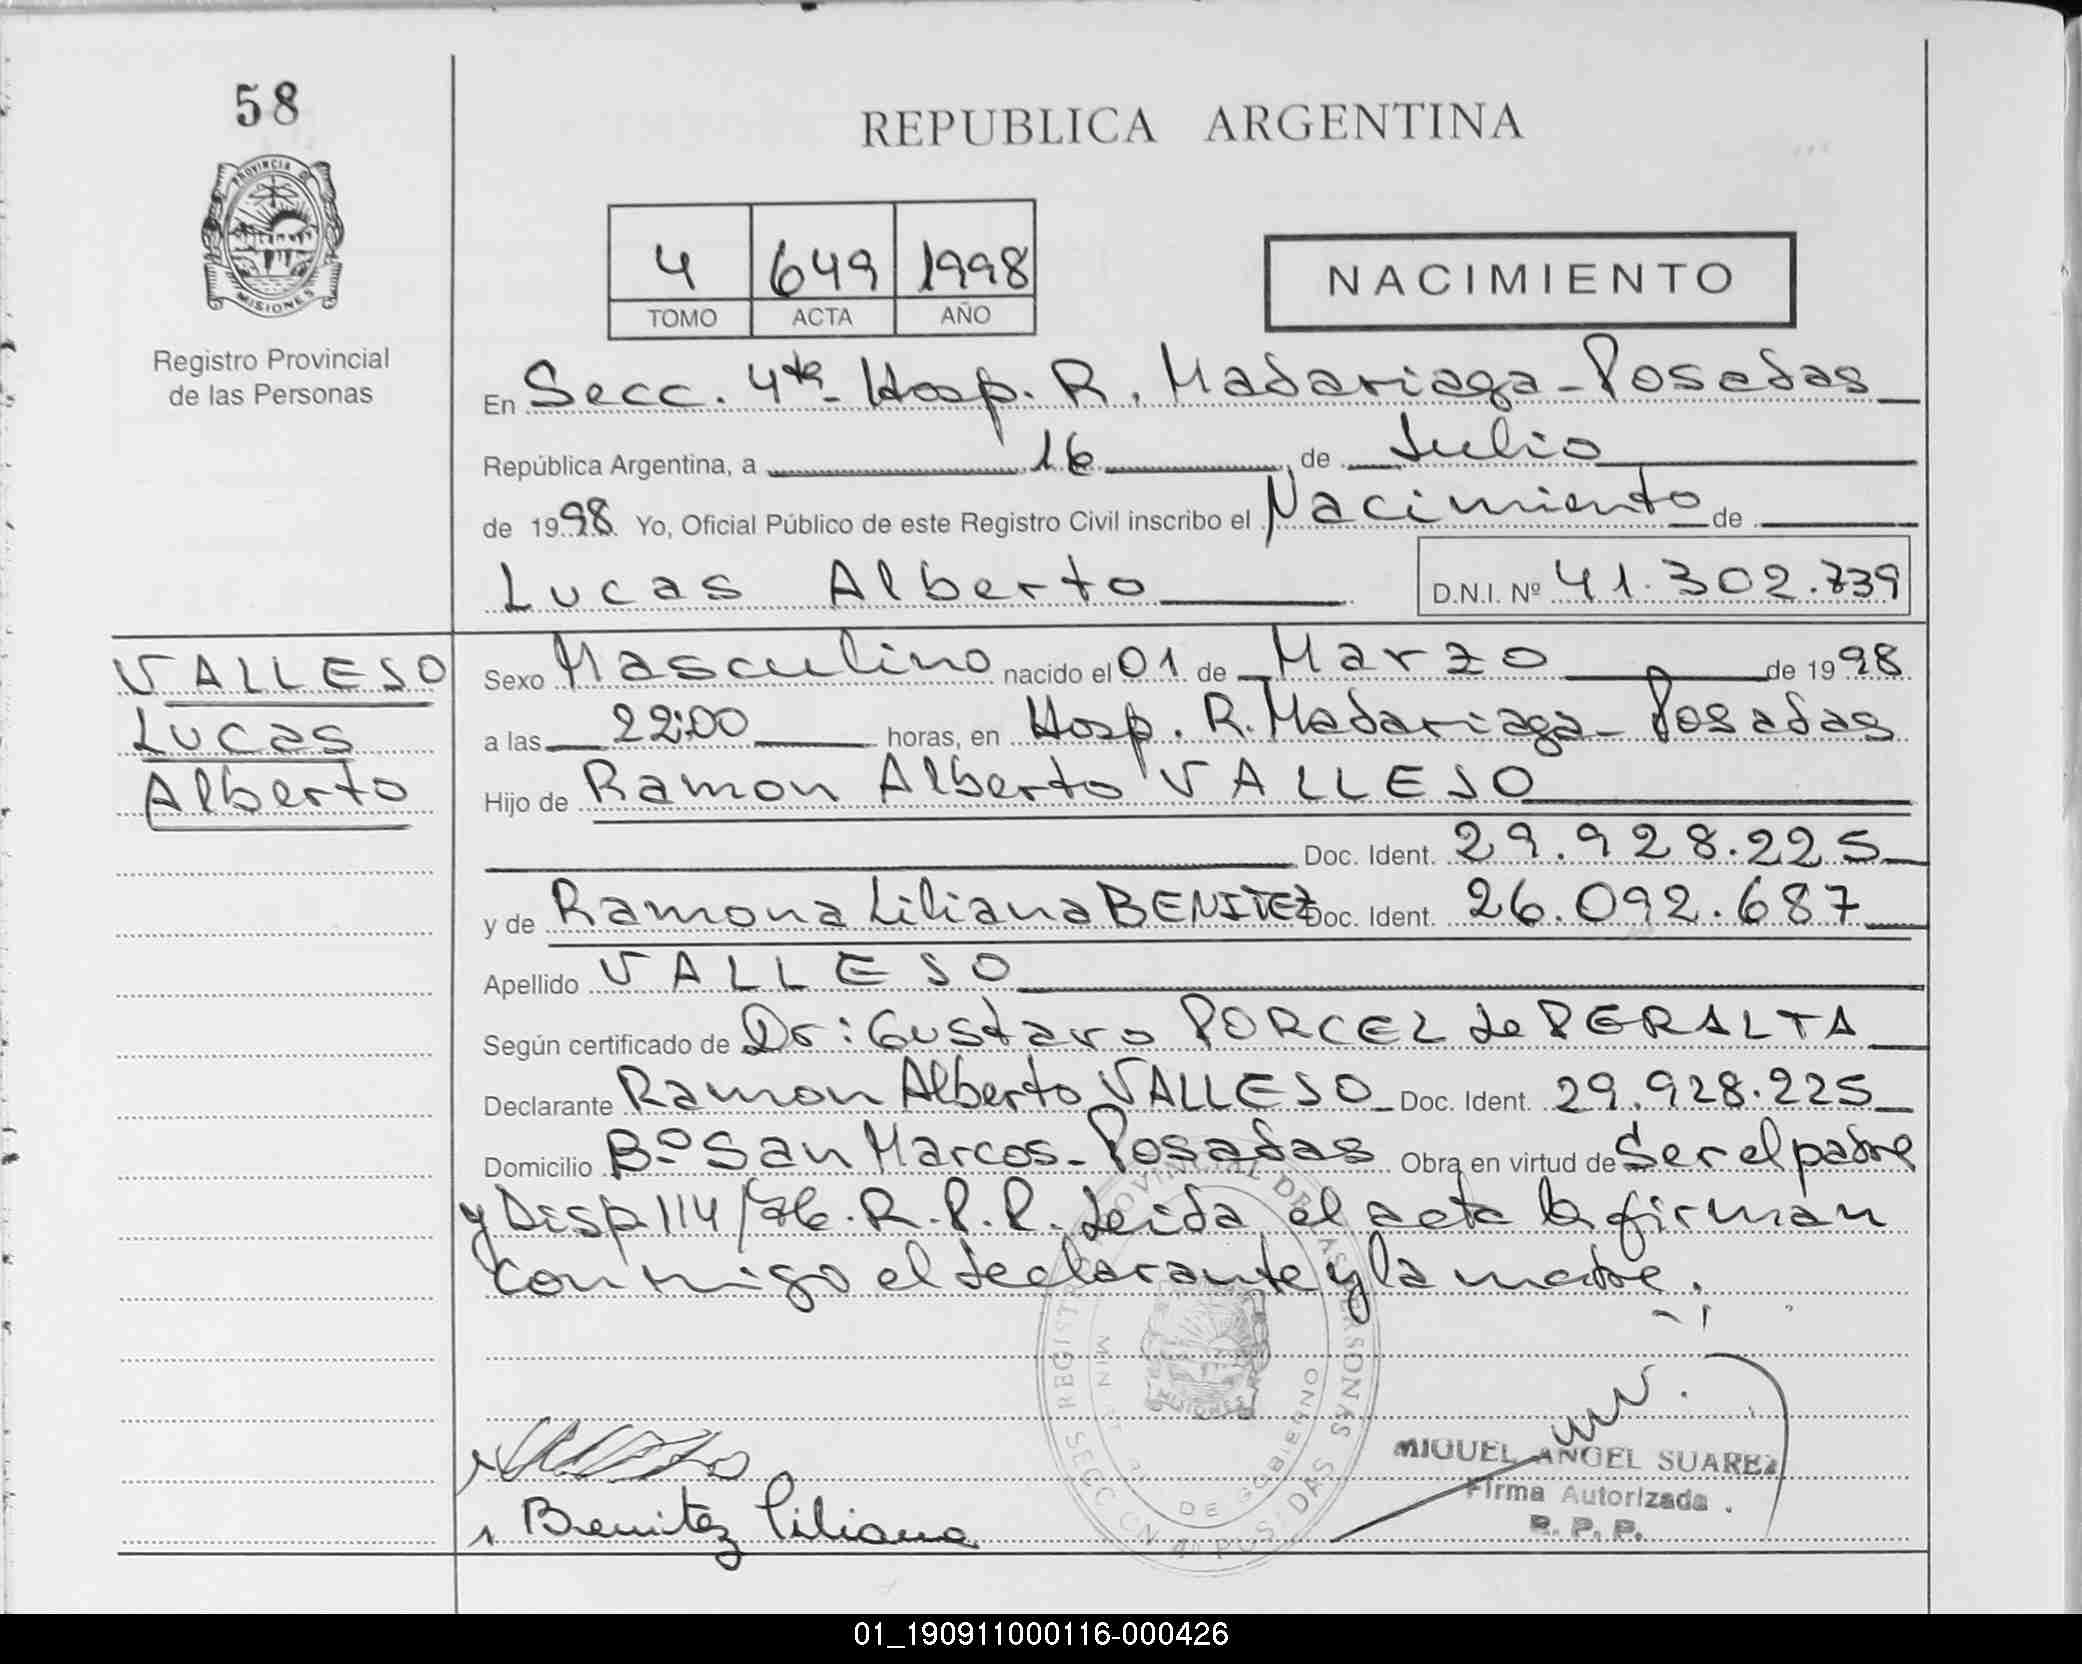 58
REPUBLICA ARGENTINA
PROVINCIA D
MISIONES
4 649 1998
TOMO ACTA AÑO
NACIMIENTO
Registro Provincial
de las Personas
En Secc. 4ta - Hosp. R. Madariaga - Posadas
República Argentina, a 16, de Julio
de 1998 Yo, Oficial Público de este Registro Civil inscribo el Nacimiento de
Lucas Alberto D.N.I. Nº 41.302.739
VALLESO
Lucas
Alberto
Sexo Masculino nacido el 01 de Marzo de 1998
a las 22:00 horas, en Hosp. R. Madariaga - Posadas
Hijo de Ramon Alberto VALLESO
Doc. Ident. 29.928.225
y de Ramona Liliana BENITEZ Doc. Ident. 26.092.687
Apellido VALLESO
Según certificado de Dr: Gustavo PORCEL de PERALTA
Declarante Ramon Alberto VALLESO Doc. Ident. 29.928.225
Domicilio Bº San Marcos - Posadas Obra en virtud de Ser el padre
y Disp 114/76. R.P.P. Leida el acta la firman
conmigo el declarante y la madre.
REGISTRO PROVINCIAL DE LAS PERSONAS
DE GOBIERNO
MISIONES
MIGUEL ANGEL SUAREZ
Firma Autorizada
R. P. P.
Benitez Liliana
01_190911000116-000426